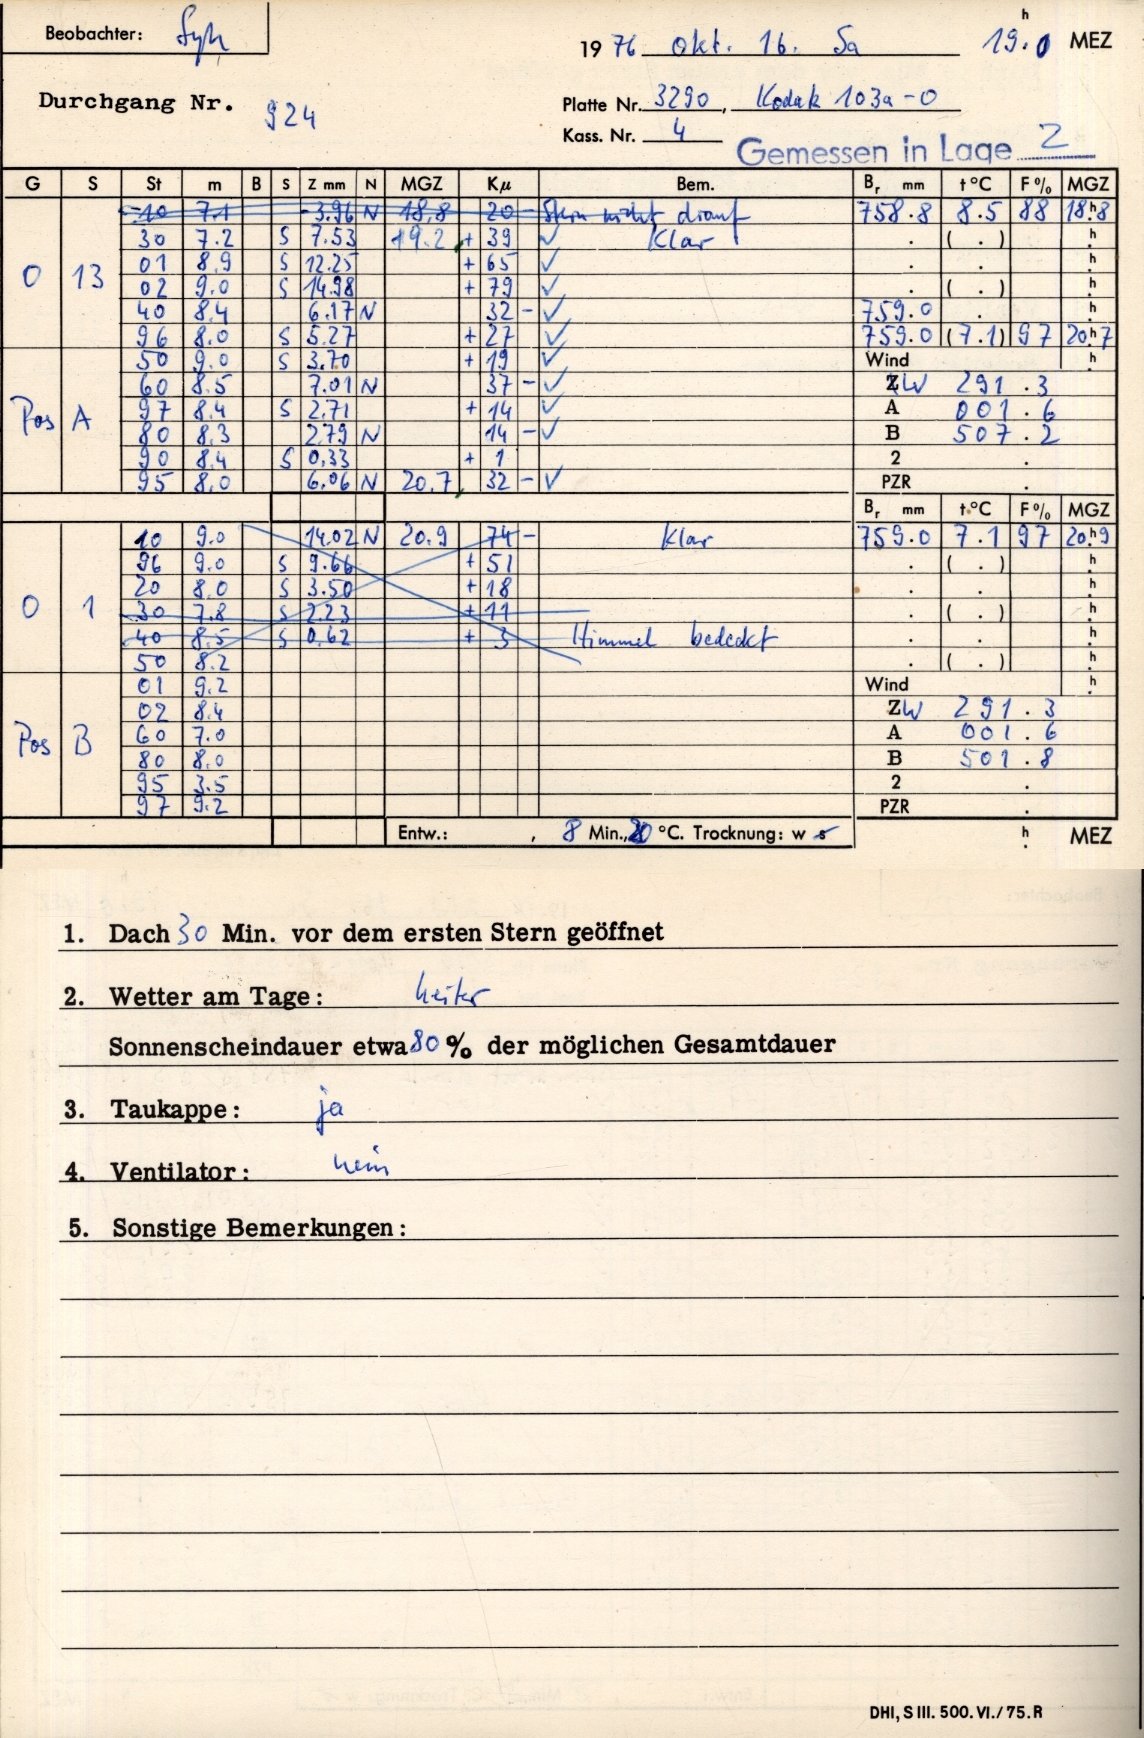 Beobachter: Syh
1976 Okt. 16. Sa 19.0 h MEZ
Durchgang Nr. 924
Platte Nr. 3290, Kodak 103a-O
Kass. Nr. 4
Gemessen in Lage 2
G S St m B S Z mm N MGZ Kμ Bem. Br mm t °C F % MGZ
10 7.1 3.96 N 18.8 20 - Stern nicht drauf 758.8 8.5 88 18.h8
30 7.2 S 7.53 19.2 + 39 ✓ Klar . ( . ) h
01 8.9 S 12.25 + 65 ✓ . . h
O 13 02 9.0 S 14.98 + 79 ✓ . ( . ) h
40 8.4 6.17 N 32 - ✓ 759.0 . h
96 8.0 S 5.27 + 27 ✓ 759.0 (7.1) 97 20.h7
50 9.0 S 3.70 + 19 ✓ Wind h
60 8.5 7.01 N 37 - ✓ ZW 291.3
Pos A 97 8.4 S 2.71 + 14 ✓ A 001.6
80 8.3 2.79 N 14 - ✓ B 507.2
90 8.4 S 0.33 + 1 2 .
95 8.0 6.06 N 20.7 32 - ✓ PZR .
Br mm t °C F % MGZ
10 9.0 14.02 N 20.9 74 - Klar 759.0 7.1 97 20.h9
96 9.0 S 9.66 + 51 . ( . ) h
20 8.0 S 3.50 + 18 . . h
O 1 30 7.8 S 2.23 + 11 . ( . ) h
40 8.5 S 0.62 + 3 Himmel bedeckt . . h
50 8.2 . ( . ) h
01 9.2 Wind h
02 8.4 ZW 291.3
Pos B 60 7.0 A 001.6
80 8.0 B 501.8
95 3.5 2 .
97 9.2 PZR .
Entw.: , 8 Min., 20 °C. Trocknung: w s h MEZ
1. Dach 30 Min. vor dem ersten Stern geöffnet
2. Wetter am Tage: heiter
Sonnenscheindauer etwa 80 % der möglichen Gesamtdauer
3. Taukappe: ja
4. Ventilator: nein
5. Sonstige Bemerkungen:
DHI, S III. 500. VI./75. R